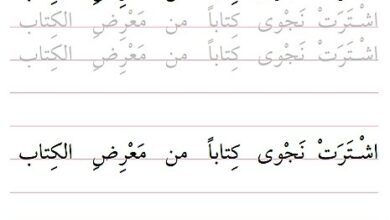 اشْتَرَتْ نَجْوى كِتاباً من مَعْرِضِ الكِتاب
اشْتَرَتْ نَجْوى كِتاباً من مَعْرِضِ الكِتاب
اشْتَرَتْ نَجْوى كِتاباً من مَعْرِضِ الكِتاب